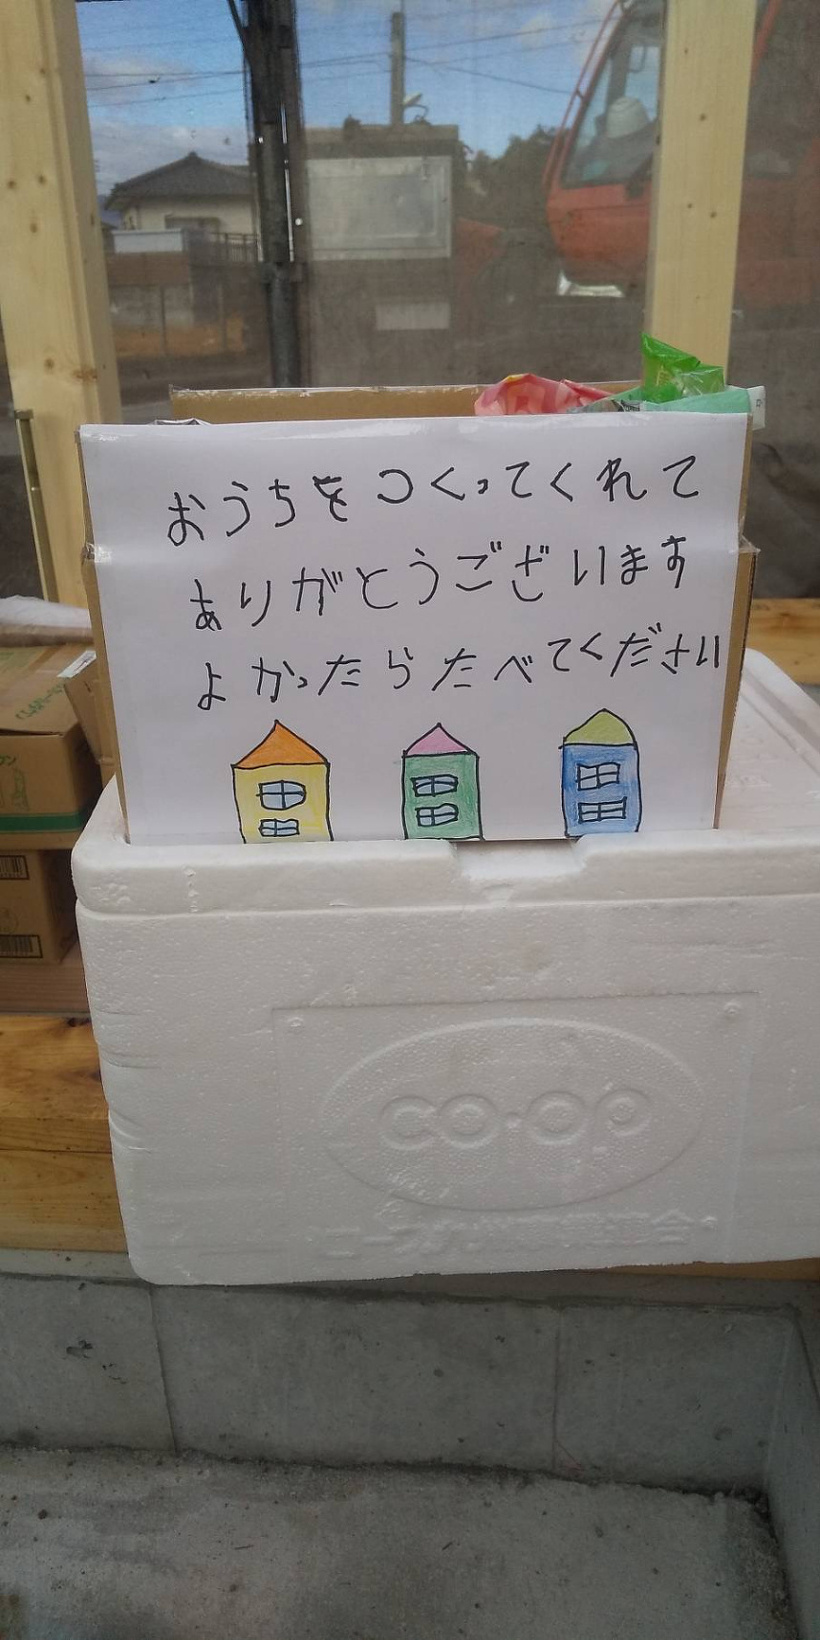 おうちをつくってくれて
ありがとうございます
よかったらたべてください
CO·OP